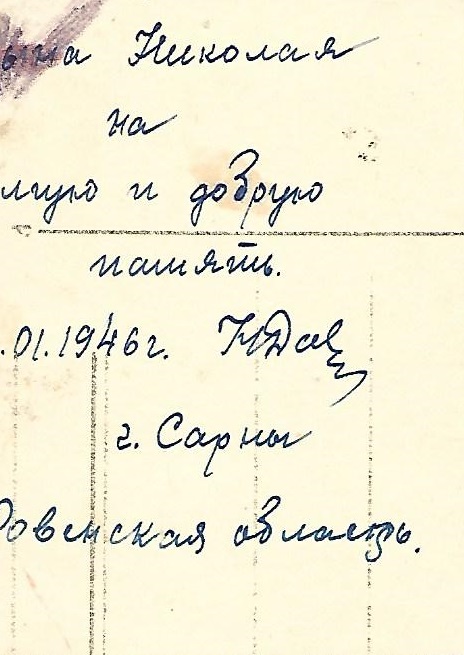 ына Николая
на
лгую и добрую
память.
.01.1946г. НДав
г. Сарны
Ровенская область.